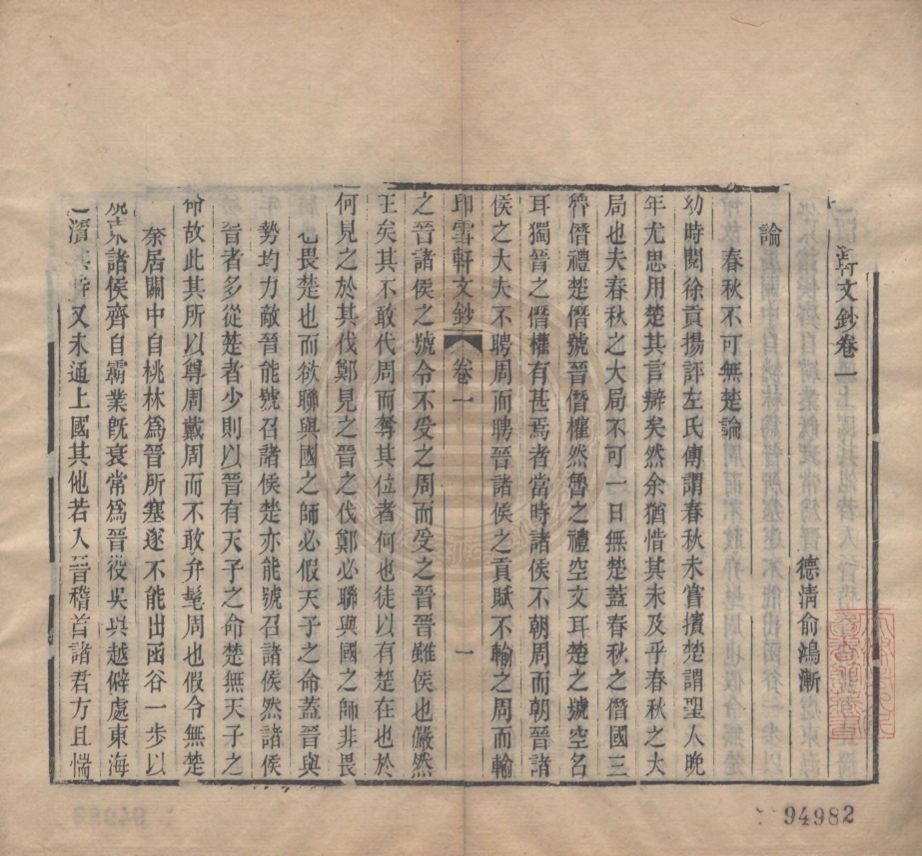 軒文鈔卷一
德清俞鴻漸
論
春秋不可無楚論
幼時閱徐貢揚評左氏傳謂春秋未嘗擯楚謂聖人晚
年尤思用楚其言辯矣然余猶惜其未及乎春秋之大
局也夫春秋之大局不可一日無楚蓋春秋之僭國三
魯僭禮楚僭號晉僭權然魯之禮空文耳楚之號空名
耳獨晉之僭權有甚焉者當時諸侯不朝周而朝晉諸
侯之大夫不聘周而聘晉諸侯之貢賦不輸之周而輸
印雪軒文鈔 卷一 一
之晉諸侯之號令不受之周而受之晉晉雖侯也儼然
王矣其不敢代周而奪其位者何也徒以有楚在也於
何見之於其伐鄭見之晉之伐鄭必聯與國之師非畏
也畏楚也而欲聯與國之師必假天子之命蓋晉與
勢均力敵晉能號召諸侯楚亦能號召諸侯然諸侯
晉者多從楚者少則以晉有天子之命楚無天子之
命故此其所以尊周戴周而不敢弁髦周也假令無楚
秦居關中自桃林為晉所塞遂不能出函谷一步以
諸侯齊自霸業既衰常為晉役吳與越僻處東海
之濱又未通上國其他若人晉稽首諸君方且惴
94982